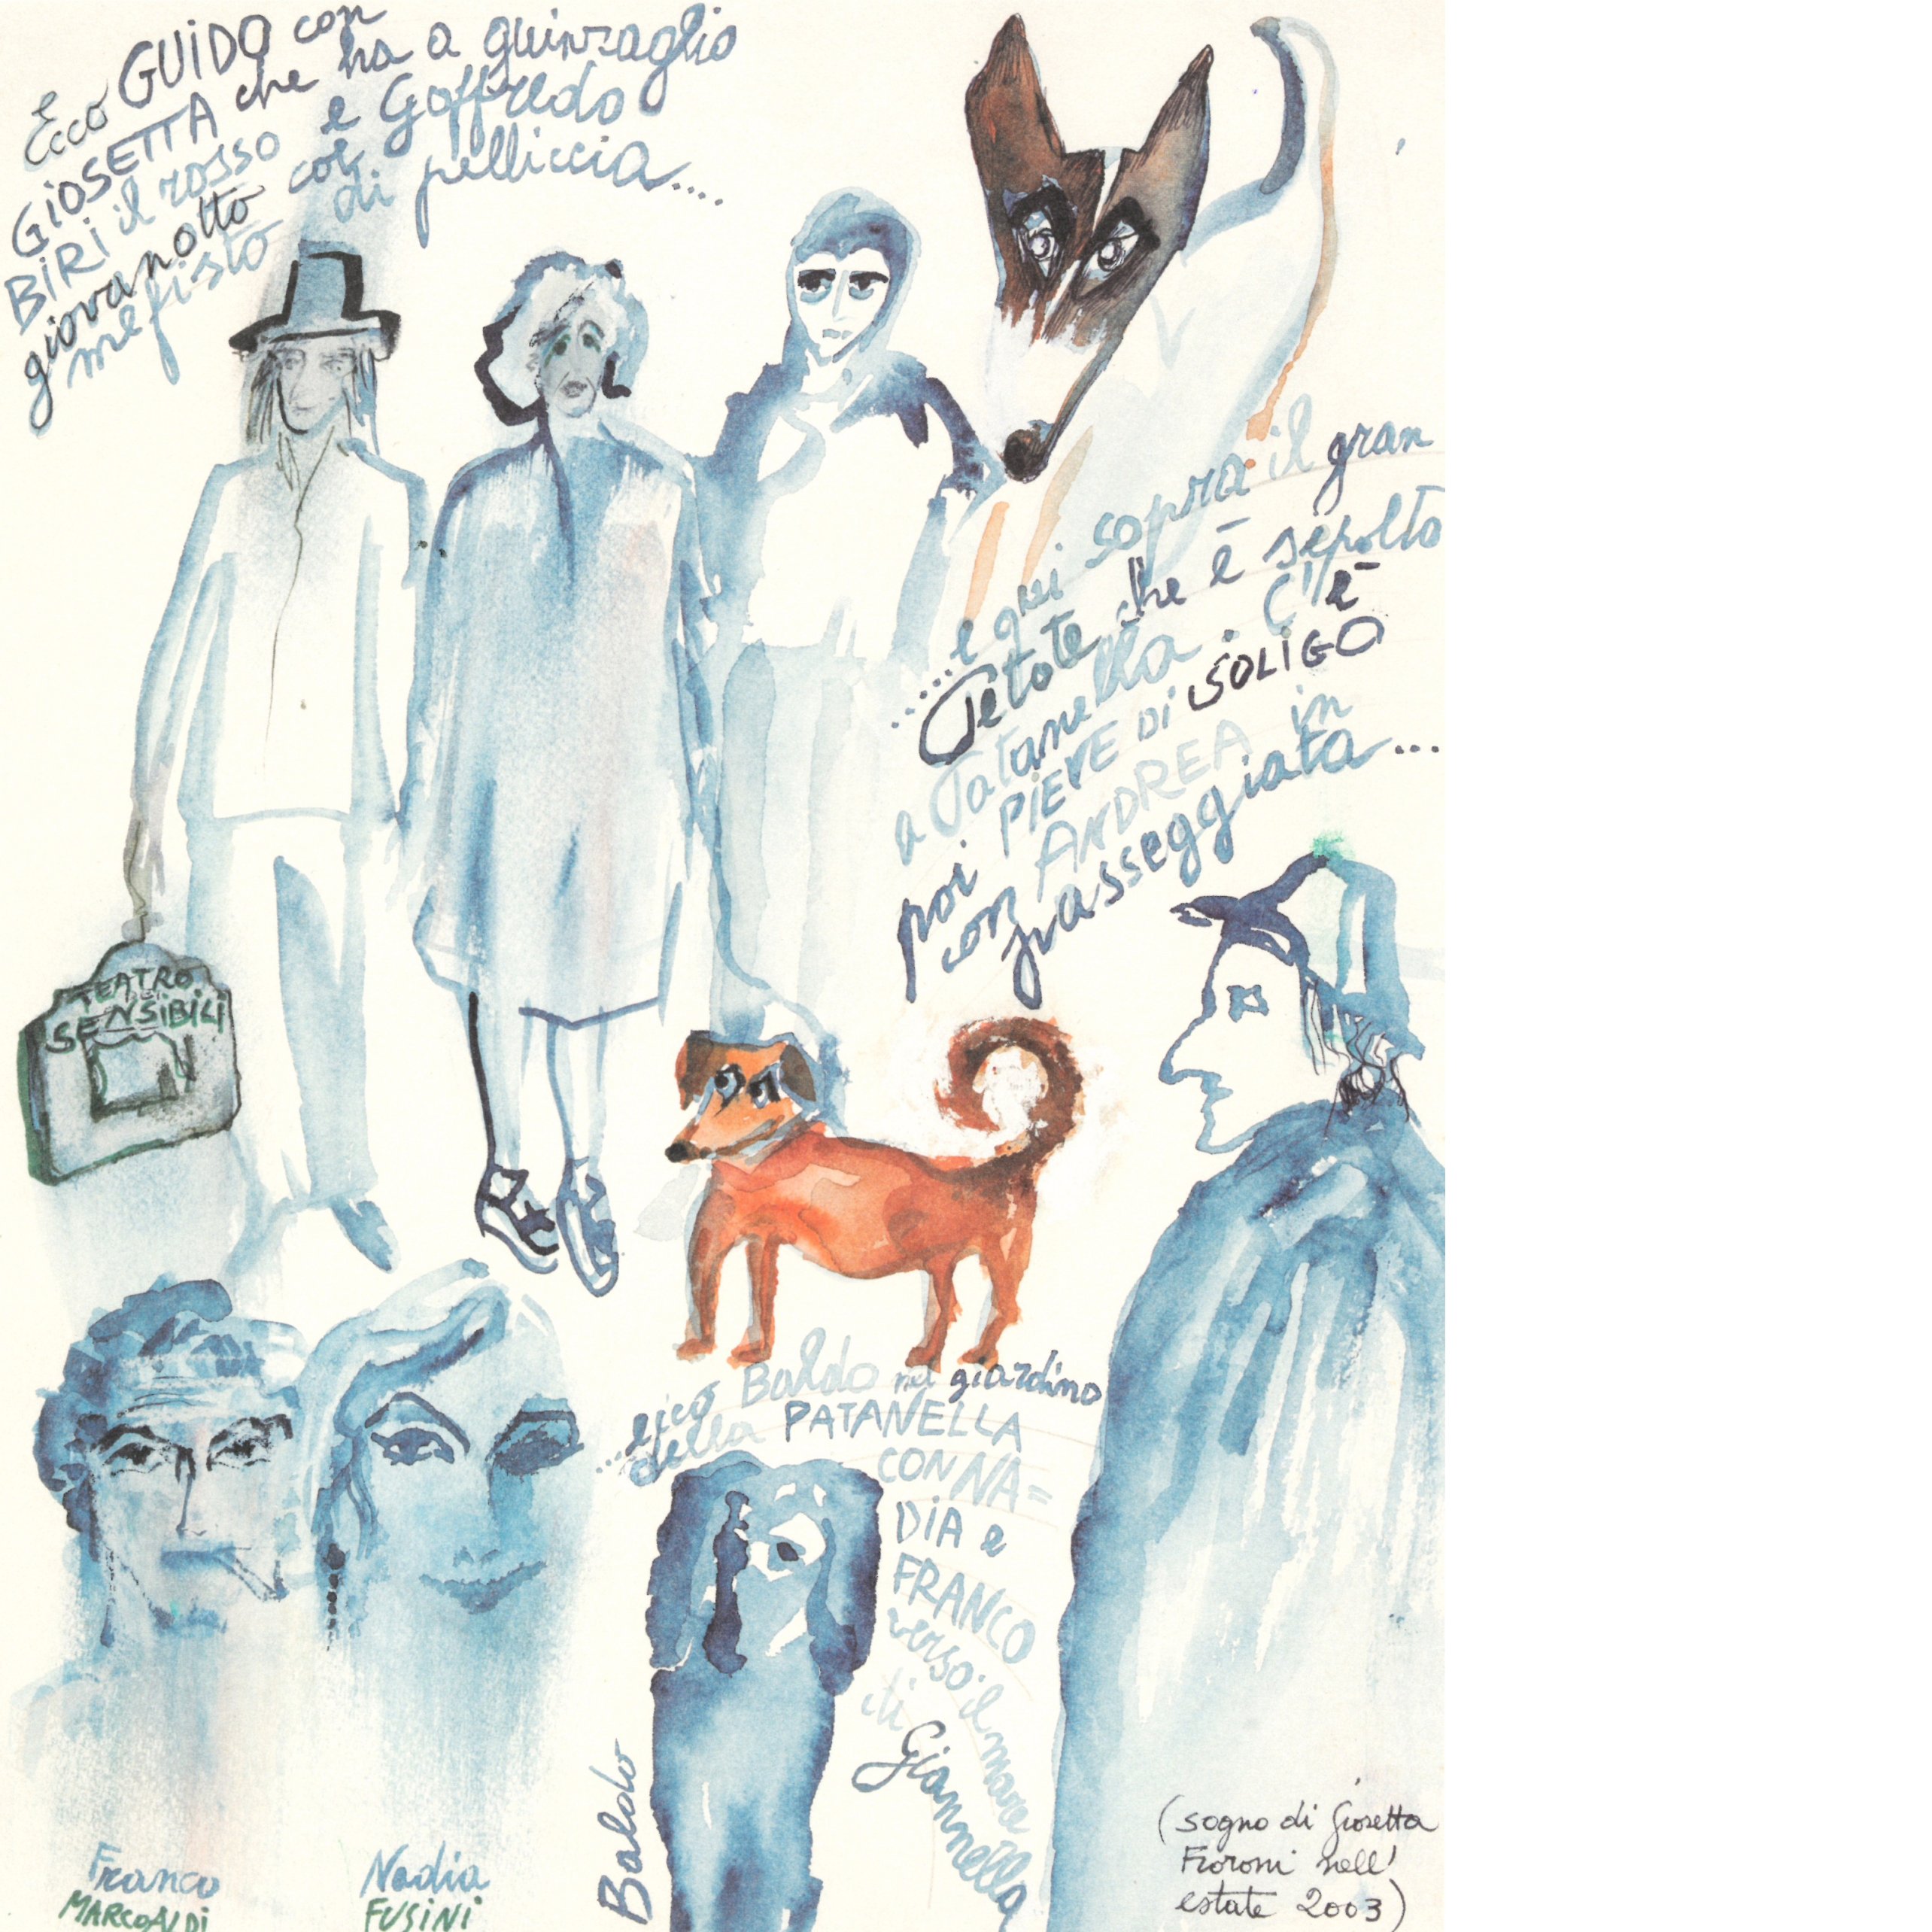 Ecco GUIDO con
GIOSETTA che ha a guinzaglio
BIRI il rosso e Goffredo
giovanotto col
mefisto di pelliccia....
....e qui sopra il gran
Tetote che è sepolto
a Patanella. C'è
poi PIEVE DI SOLIGO
con ANDREA in
passeggiata...
TEATRO
DEI
SENSIBILI
...ecco Baldo nel giardino
della PATANELLA
CON NA=
DIA e
FRANCO
verso il mare
di Giannella
Baldo
Franco
MARCOALDI
Nadia
FUSINI
(sogno di Giosetta
Fioroni nell'
estate 2003)